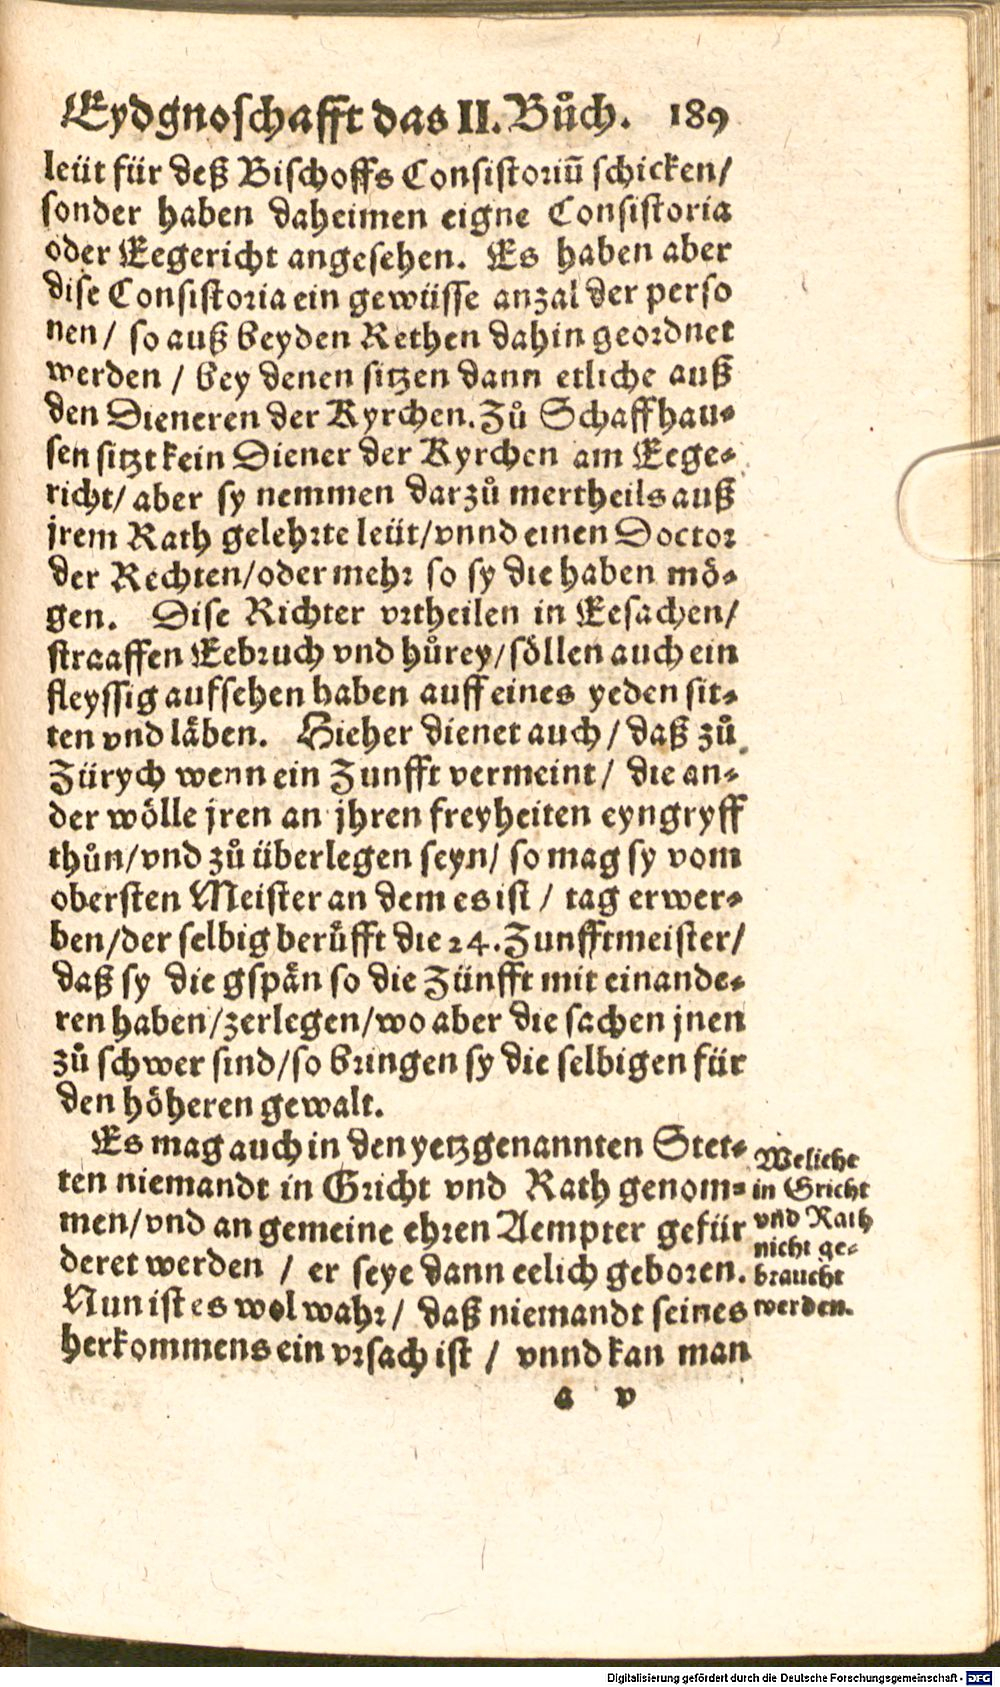 Eydgnoschafft das II. Bůch. 189
leüt für deß Bischoffs Consistoriū schicken/
sonder haben daheimen eigne Consistoria
oder Eegericht angesehen. Es haben aber
dise Consistoria ein gewüsse anzal der perso
nen / so auß beyden Rethen dahin geordnet
werden / bey denen sitzen dann etliche auß
den Dieneren der Kyrchen. Zů Schaffhau-
sen sitzt kein Diener der Kyrchen am Eege-
richt/ aber sy nemmen darzů mertheils auß
jrem Rath gelehrte leüt/vnnd einen Doctor
der Rechten/oder mehr so sy die haben mö-
gen. Dise Richter vrtheilen in Eesachen/
straaffen Eebruch vnd hůrey/söllen auch ein
fleyssig aufsehen haben auff eines yeden sit-
ten vnd läben. Hieher dienet auch / daß zů
Zürych wenn ein Zunfft vermeint / die an-
der wölle jren an jhren freyheiten eyngryff
thůn/vnd zů überlegen seyn/ so mag sy vom
obersten Meister an dem es ist / tag erwer-
ben/der selbig berůfft die 24. Zunfftmeister/
daß sy die gspän so die Zünfft mit einande-
ren haben/zerlegen/wo aber die sachen jnen
zů schwer sind/so bringen sy die selbigen für
den höheren gewalt.
Es mag auch in den yetzgenannten Stet-
ten niemandt in Gricht vnd Rath genom-
men/vnd an gemeine ehren Aempter gefür
deret werden / er seye dann eelich geboren.
Nun ist es wol wahr / daß niemandt seines
herkommens ein vrsach ist / vnnd kan man
Weliche
in Gricht
vnd Rath
nicht ge-
braucht
werden.
a v
Digitalisierung gefördert durch die Deutsche Forschungsgemeinschaft - DFG